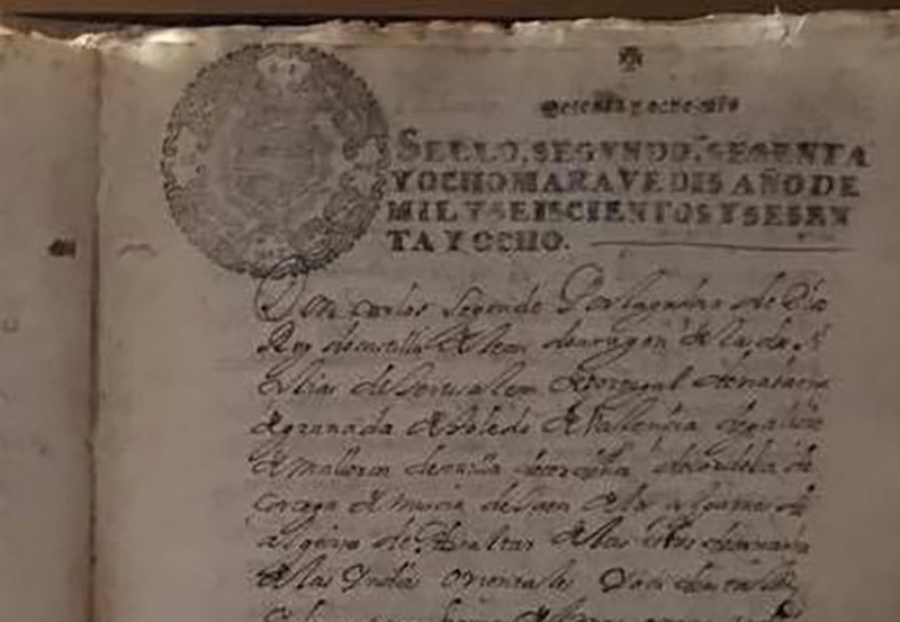 Sesenta y ocho mrs
SELLO, SEGVNDO, SESENTA
Y OCHO MARAVEDIS AÑO DE
MIL Y SEISCIENTOS Y SESEN
TA Y OCHO.
Don carlos Segundo Por la gracia de Dios
Rey de castilla de leon de aragon de las dos
cilias de Jerusalem de portugal de nabarra
de granada de toledo de Valencia de galicia
de mallorca de sevilla de cerdeña de cordoba de
corcega de murcia de Jaen de los algarves de
algecira de Gibraltar de las islas de canaria
de las Yndias orientales Y occidentales